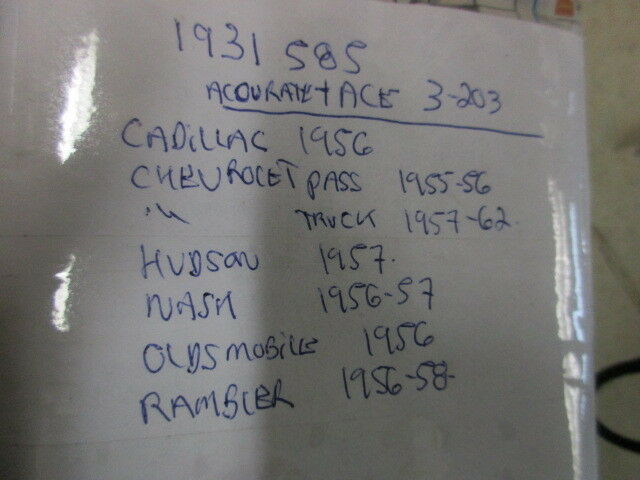 1931 585
ACOURATE+ACE 3-203
CADILLAC 1956
CHEVROLET PASS 1955-56
" TRUCK 1957-62.
HUDSON 1957.
NASH 1956-57
OLDSMOBILE 1956
RAMBLER 1956-58-